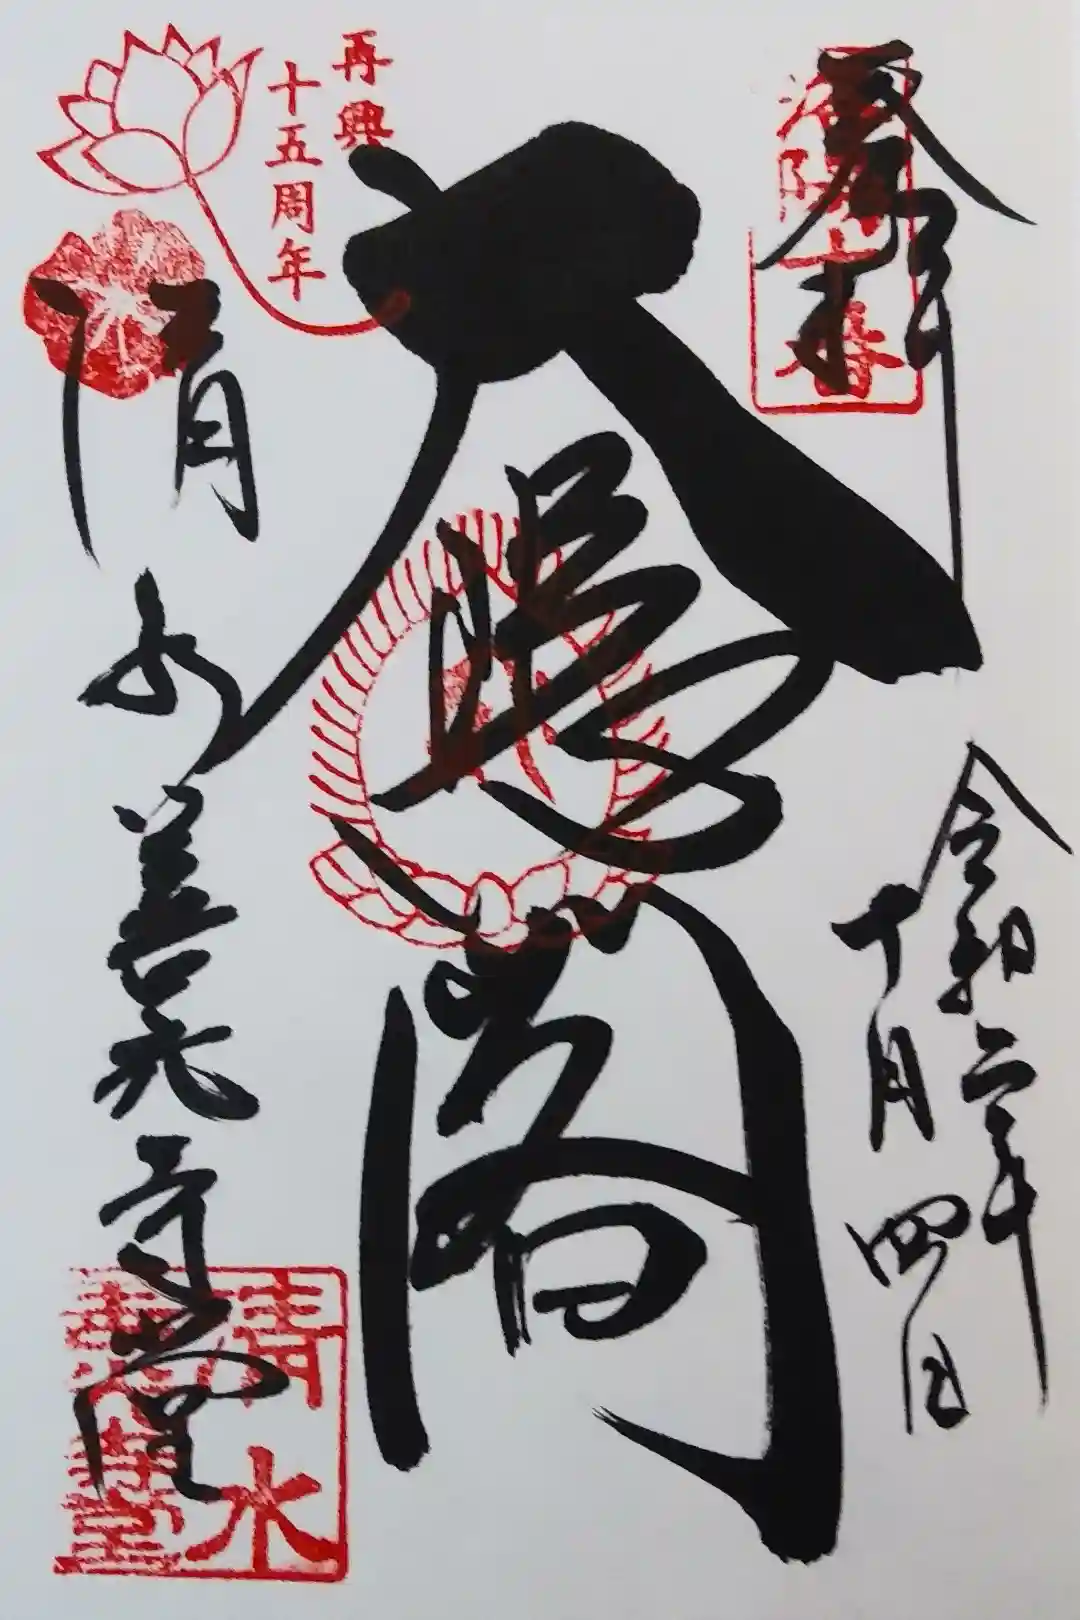 奉拝
洛陽十番
令和二年
十月四日
大悲閣
再興
十五周年
清水善光寺堂
清水
善光寺堂